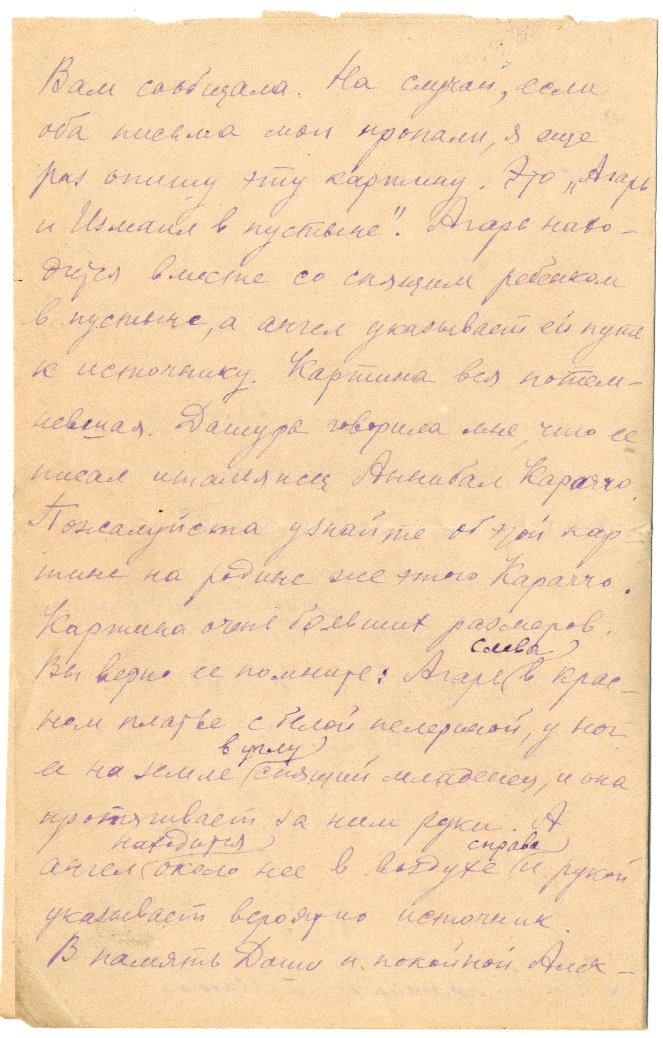 Вам сообщала. На случай, если
оба письма мои пропали, я еще
раз опишу эту картину. Это „Агарь
и Измаил в пустыне". Агарь нахо-
дится вместе со спящим ребенком
в пустыне, а ангел указывает ей путь
к источнику. Картина вся потем-
невшая. Дашура говорила мне, что ее
писал итальянец Аннибал Караччо.
Пожалуйста узнайте об этой кар-
тине на родине же этого Караччо.
Картина очень больших размеров.
слева
Вы верно ее помните: Агарь в крас-
ном платье с белой пелериной, у ног
в углу
ее на земле спящий младенец, и она
протягивает за ним руки. А
находится справа
ангел около нее в воздухе и рукой
указывает вероятно источник.
В память Даши и покойной Алек-